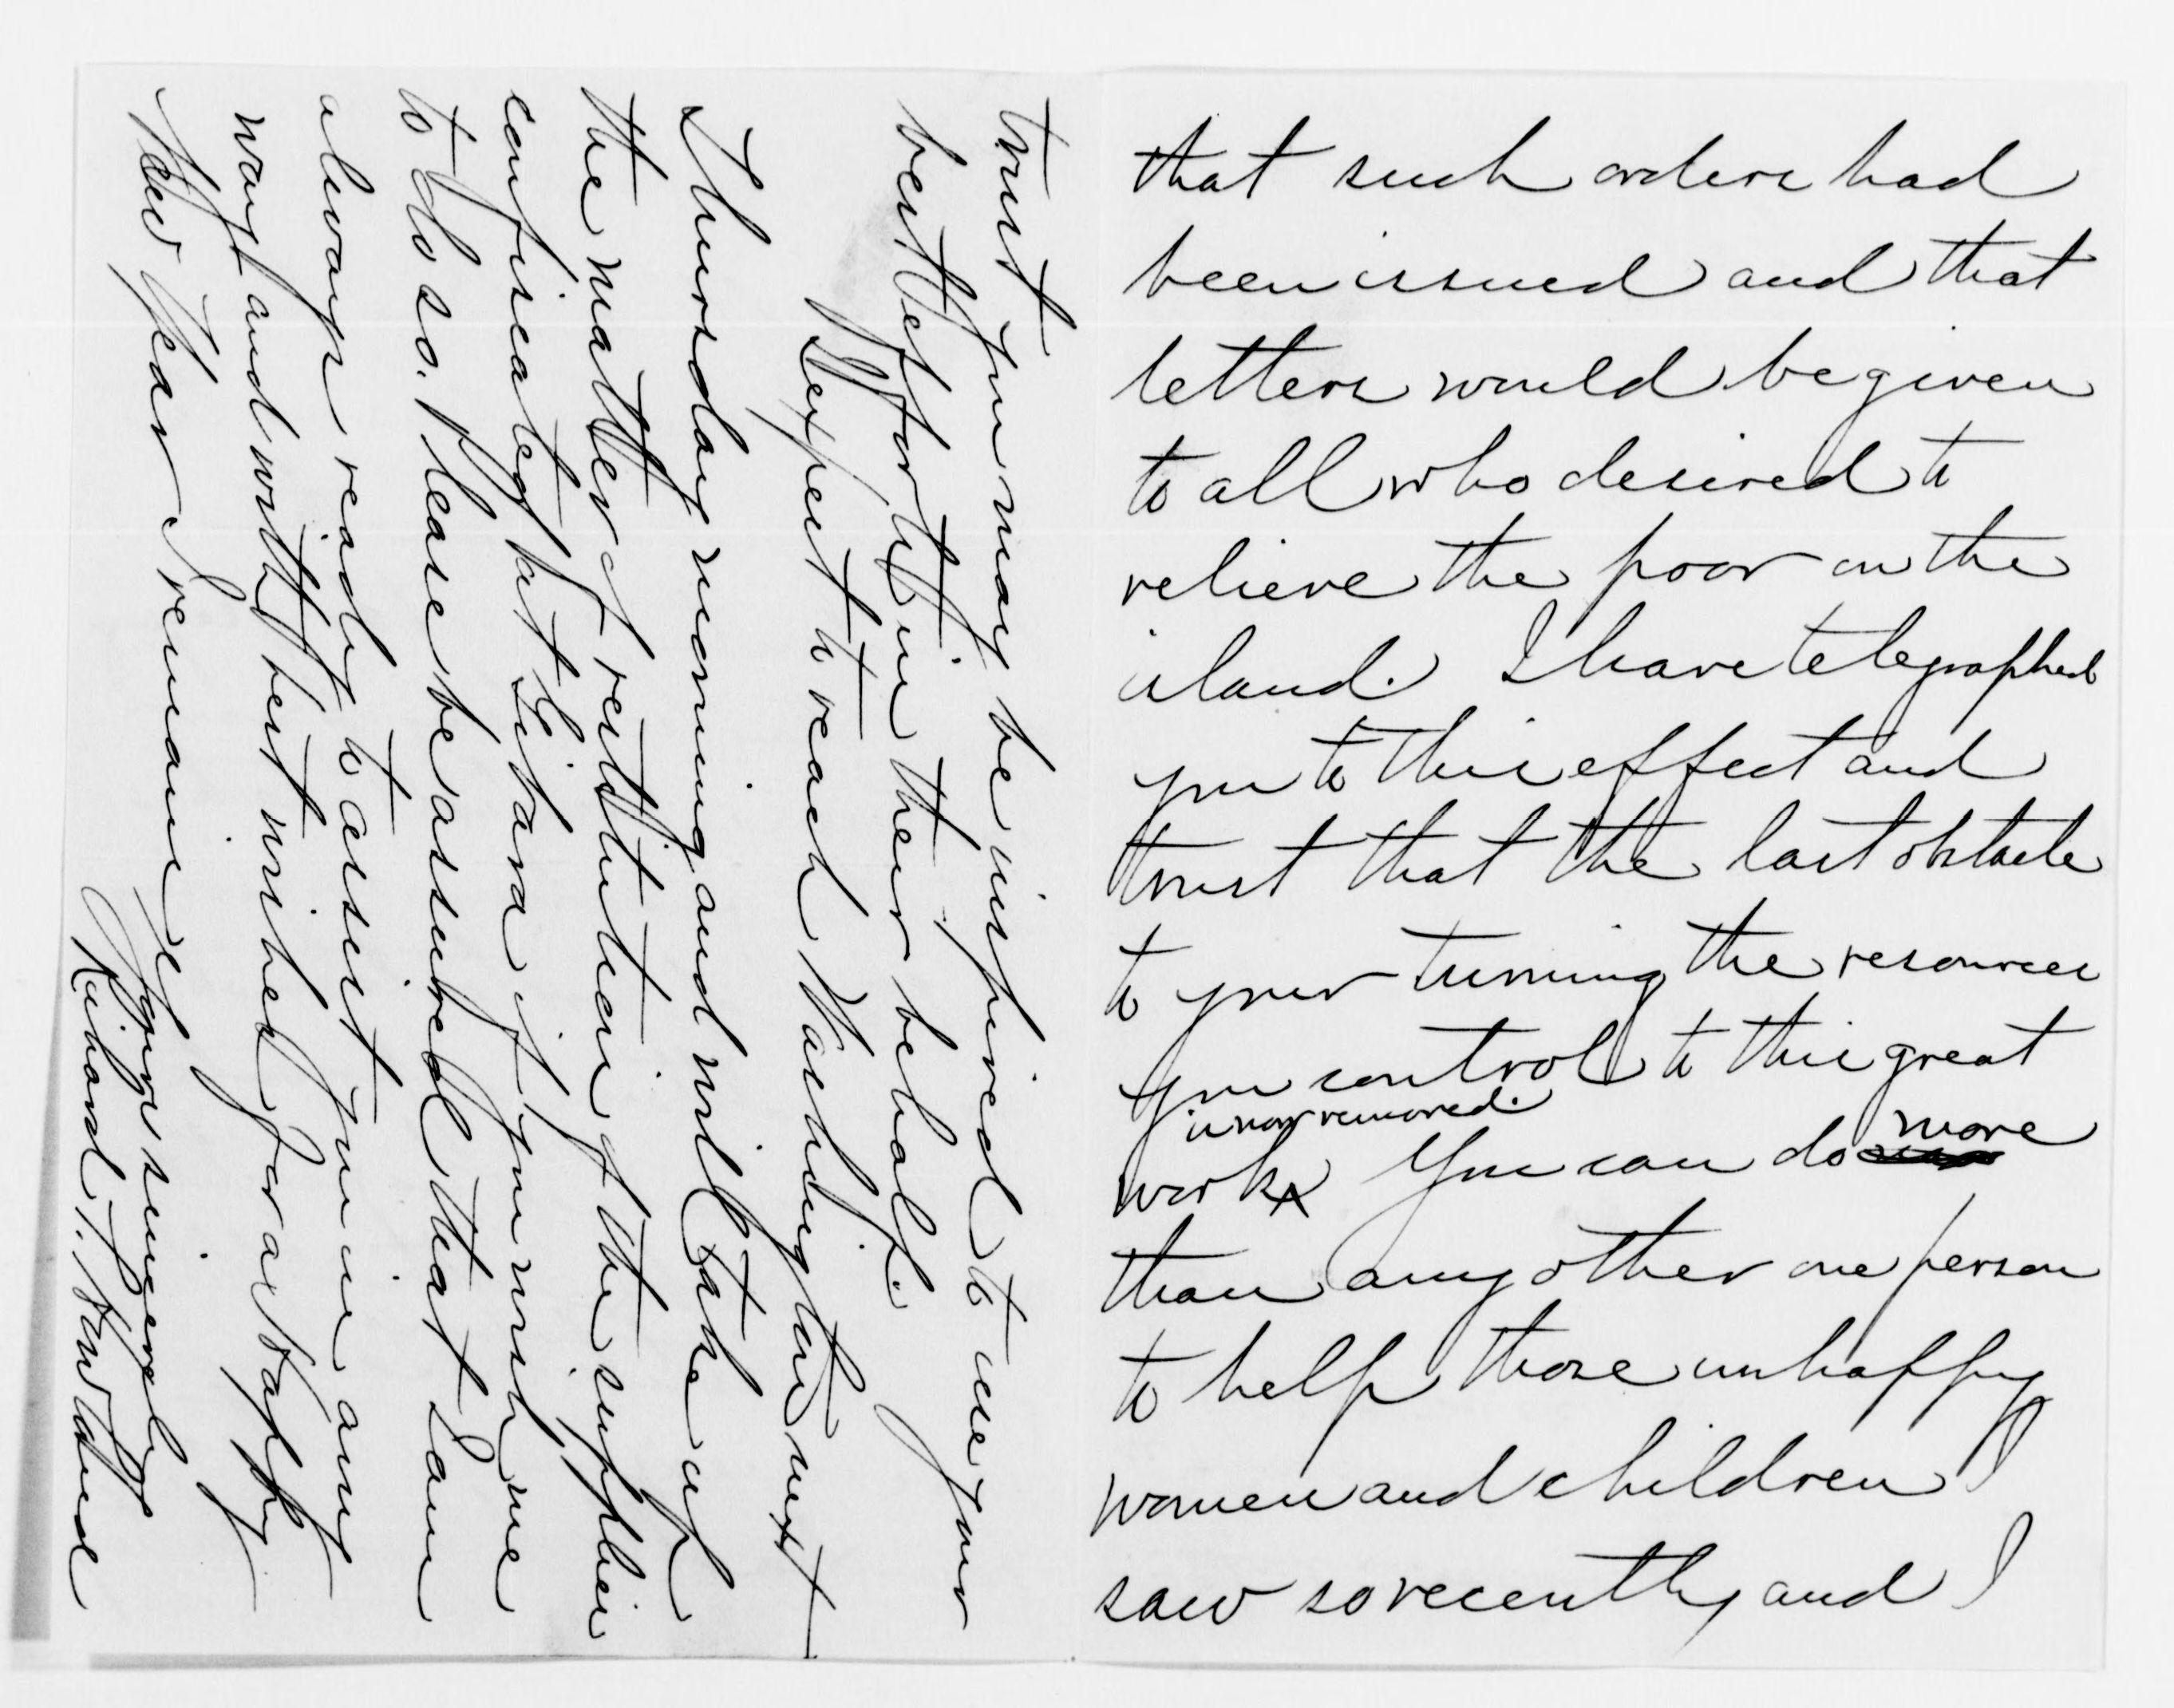 that such orders had
been issued and that
letters would be given
to all who desired to
relieve the poor on the
island. I have telegraphed
you to this effect and
trust that the last obstacle
to your turning the resources
you control to this great
is now removed.
work^ You can do more
than any other one person
to help those unhappy
women and children I
saw so recently and I
trust you may be inspired to use your
best efforts in their behalf.
I expect to reach Washington next
Thursday morning and will take up
the matter of restitution of the supplies
confiscated at Gibara if you wish me
to do so. Please be assured that I am
always ready to assist you in any
way and with best wishes for a happy
New Year I remain
Yours sincerely